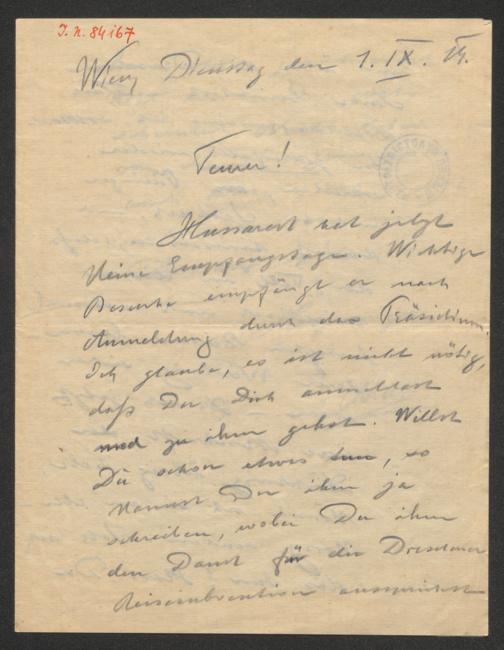 I. N. 84167
Wien, Dienstag den 1. IX. 14.
Teurer!
Hussarek hat jetzt
keine Empfangstage. Wichtige
Besuche empfängt er nach
Anmeldung durch das Präsidium.
Ich glaube, es ist nicht nötig,
daß Du Dich anmeldest
und zu ihm gehst. Willst
Du schon etwas, so
kannst Du ihm ja
schreiben, wobei Du ihm
den Dank für die Dresdener
Reisesubvention aussprichst